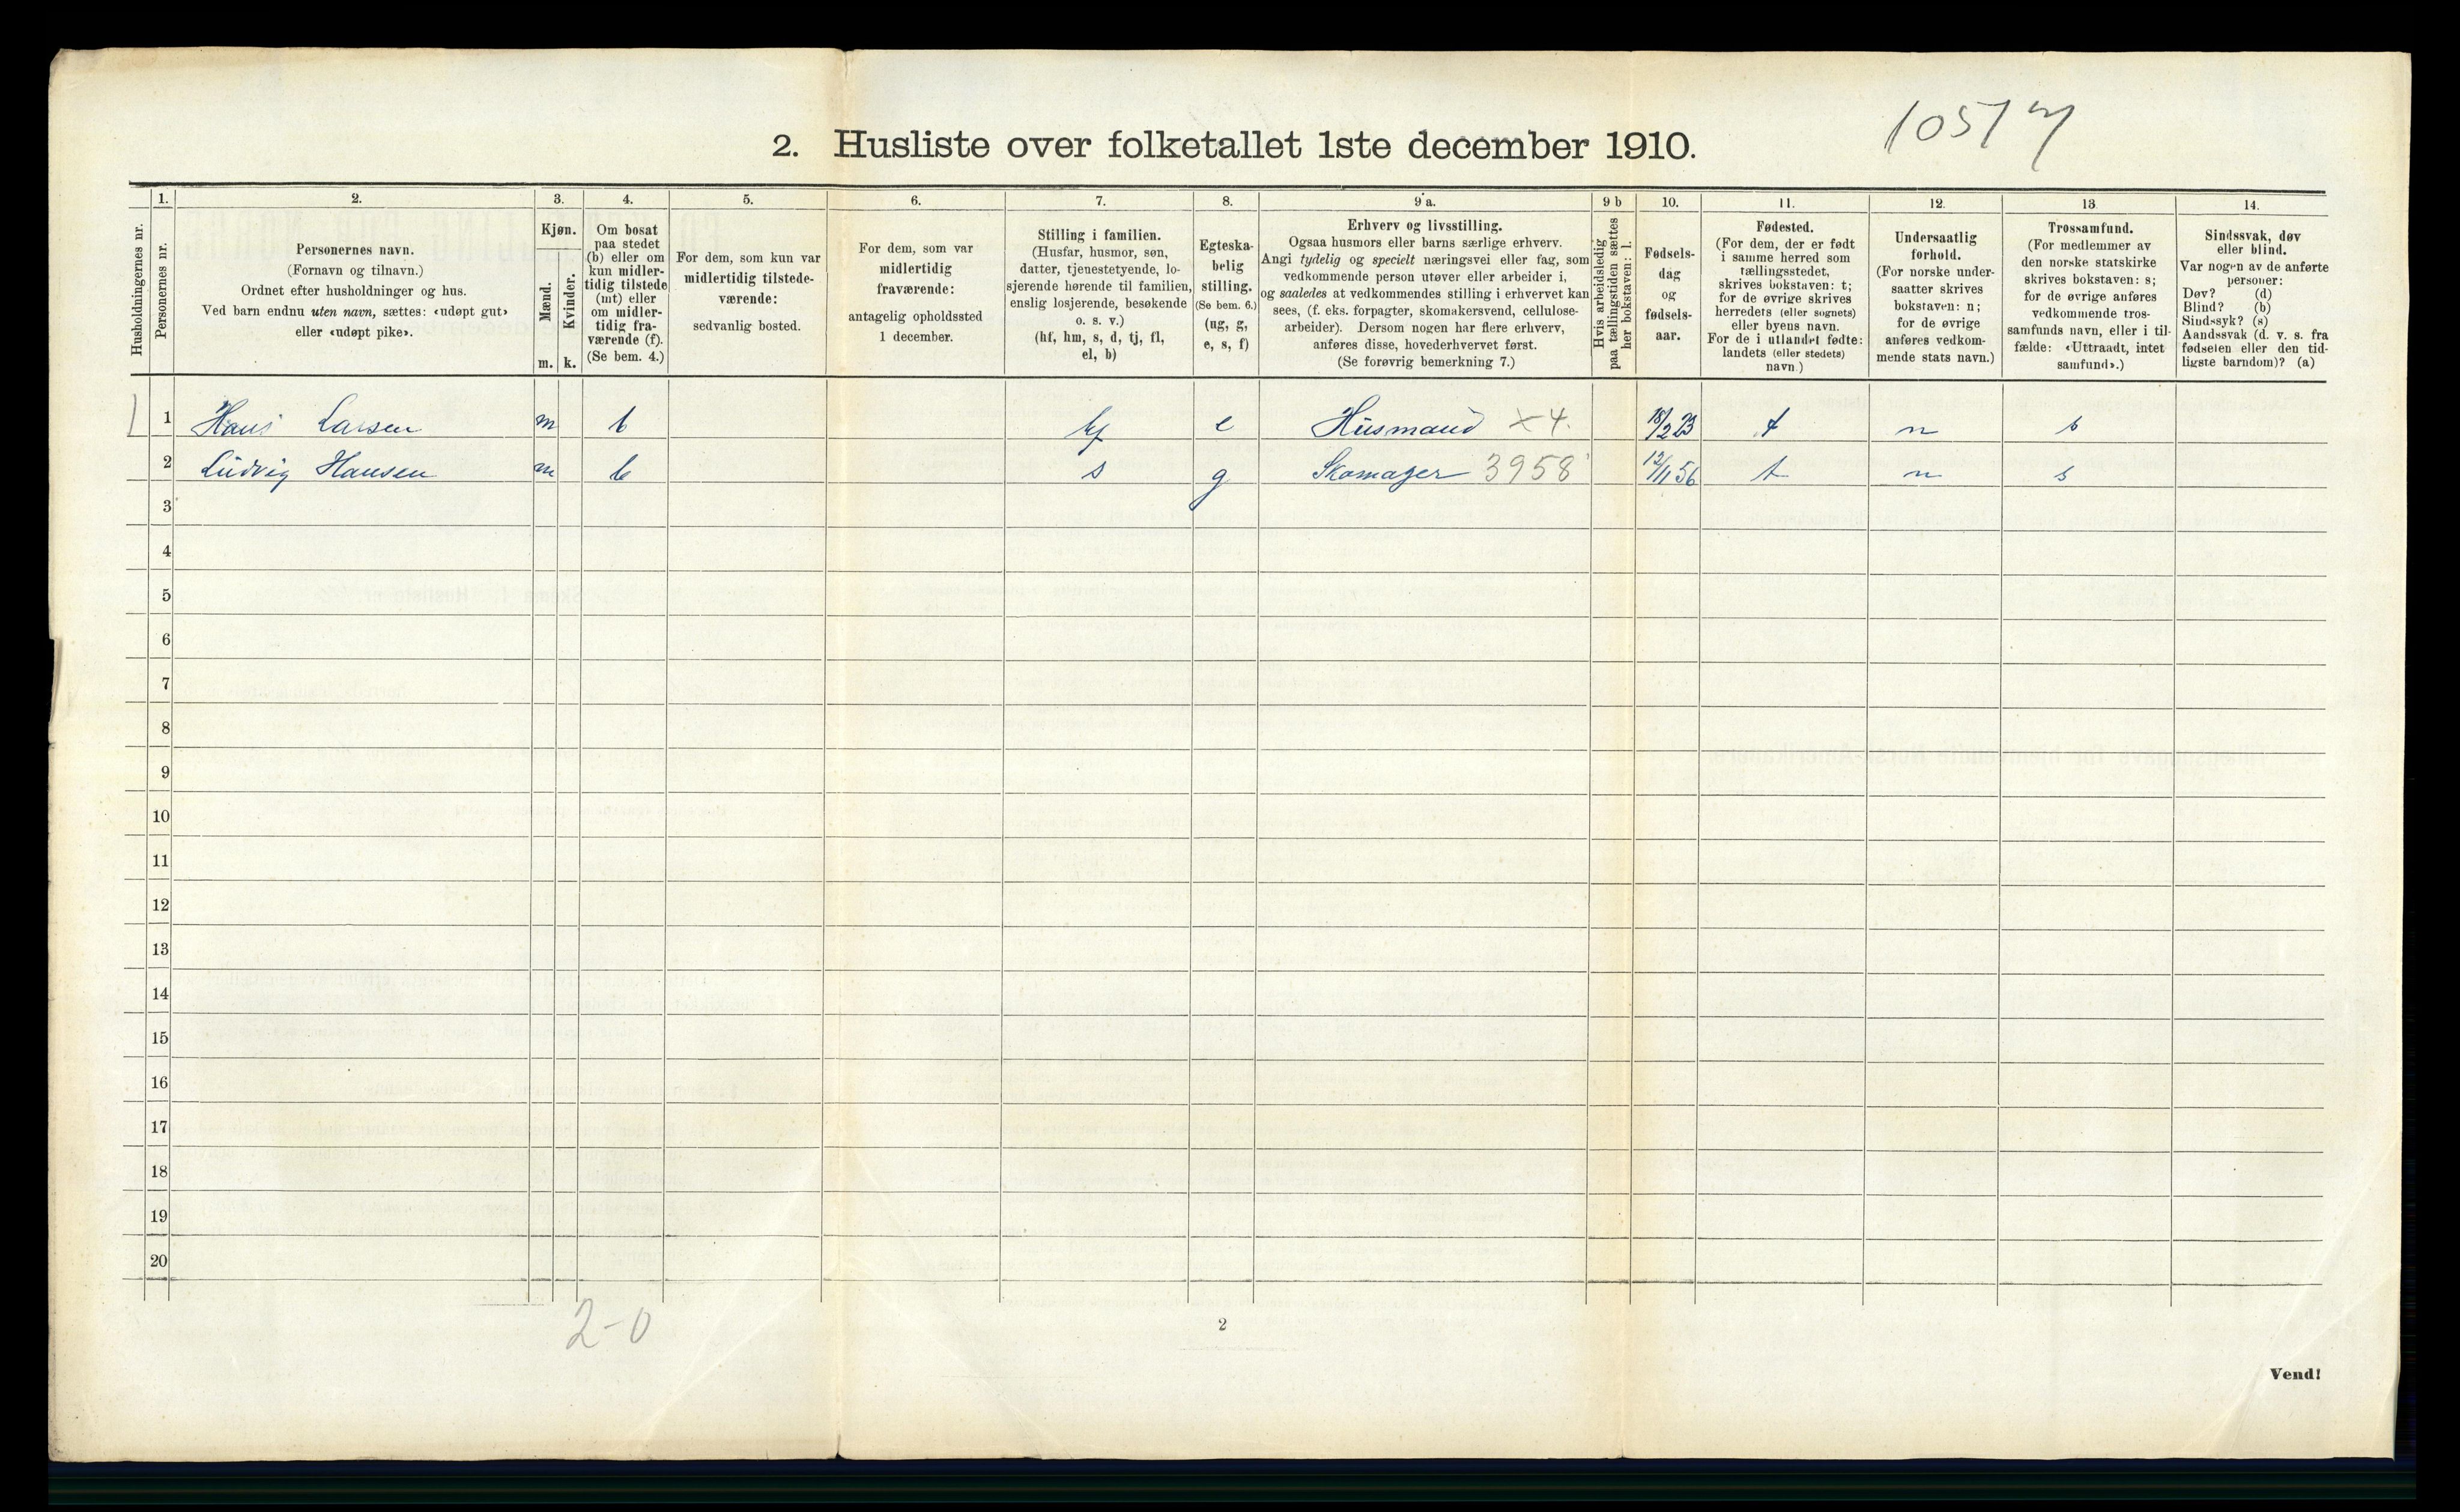 1051
2. Husliste over folketallet 1ste december 1910.
Husholdningernes nr.
1.
Personernes nr.
2.
Personernes navn.
(Fornavn og tilnavn.)
Ordnet efter husholdninger og hus.
Ved barn endnu uten navn, sættes: «udøpt gut»
eller «udøpt pike».
3.
Kjøn.
Mænd.
m.
Kvinder.
k.
4.
Om bosat
paa stedet
(b) eller om
kun midler-
tidig tilstede
(mt) eller
om midler-
tidig fra-
værende (f).
(Se bem. 4.)
5.
For dem, som kun var
midlertidig tilstede-
værende:
sedvanlig bosted.
6.
For dem, som var
midlertidig
fraværende:
antagelig opholdssted
1 december.
7.
Stilling i familien.
(Husfar, husmor, søn,
datter, tjenestetyende, lo-
sjerende hørende til familien,
enslig losjerende, besøkende
o. s. v.)
(hf, hm, s, d, tj, fl,
el, b)
8.
Egteska-
belig
stilling.
(Se bem. 6.)
(ug, g,
e, s, f)
9 a.
Erhverv og livsstilling.
Ogsaa husmors eller barns særlige erhverv.
Angi tydelig og specielt næringsvei eller fag, som
vedkommende person utøver eller arbeider i,
og saaledes at vedkommendes stilling i erhvervet kan
sees, (f. eks. forpagter, skomakersvend, cellulose-
arbeider). Dersom nogen har flere erhverv,
anføres disse, hovederhvervet først.
(Se forøvrig bemerkning 7.)
9 b
Hvis arbeidsledig
paa tællingstiden sættes
her bokstaven: l.
10.
Fødsels-
dag
og
fødsels-
aar.
11.
Fødested.
(For dem, der er født
i samme herred som
tællingsstedet,
skrives bokstaven: t;
for de øvrige skrives
herredets (eller sognets)
eller byens navn.
For de i utlandet fødte:
landets (eller stedets)
navn.)
12.
Undersaatlig
forhold.
(For norske under-
saatter skrives
bokstaven: n;
for de øvrige
anføres vedkom-
mende stats navn.)
13.
Trossamfund.
(For medlemmer av
den norske statskirke
skrives bokstaven: s;
for de øvrige anføres
vedkommende tros-
samfunds navn, eller i til-
fælde: «Uttraadt, intet
samfund».)
14.
Sindssvak, døv
eller blind.
Var nogen av de anførte
personer:
Døv? (d)
Blind? (b)
Sindssyk? (s)
Aandssvak (d. v. s. fra
fødselen eller den tid-
ligste barndom)? (a)
1 1 Hans Larsen m b hf e Husmand x 4. 18/2 23 t n s
2 Ludvig Hansen m b s g Skomager 3958 12/11 56 t n s
3
4
5
6
7
8
9
10
11
12
13
14
15
16
17
18
19
20
2-0
2
Vend!